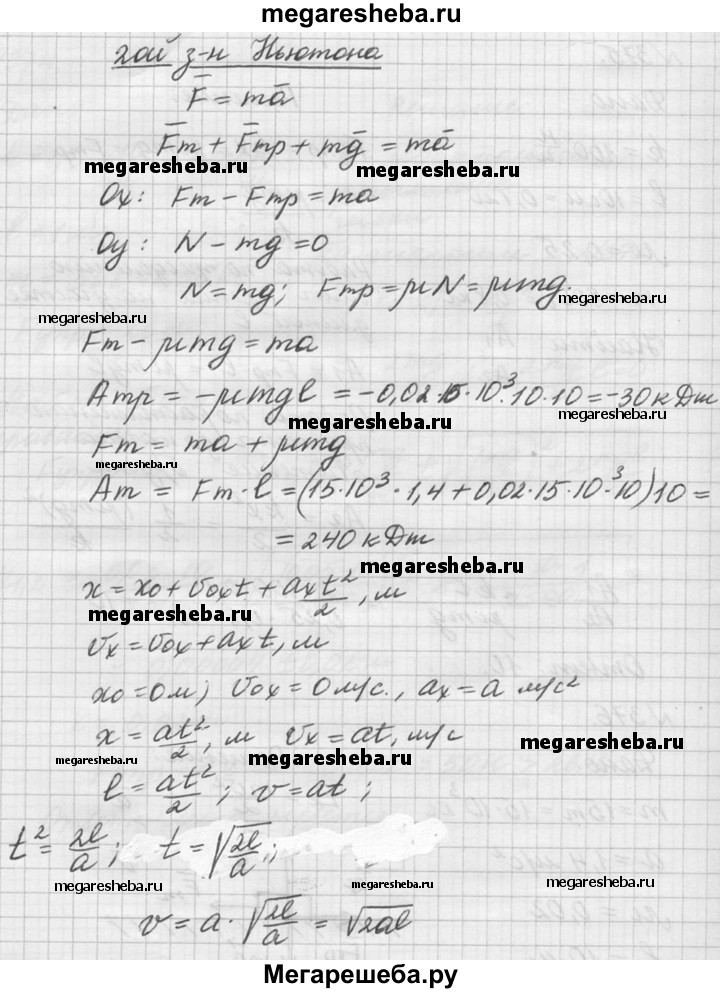 megaresheba.ru
2ой з-н Ньютона
F̄ = mā
F̄т + F̄тр + mḡ = mā
megaresheba.ru megaresheba.ru
Ox: Fт - Fтр = ma
Oy: N - mg = 0
N = mg; Fтр = μN = μmg.
megaresheba.ru
megaresheba.ru
Fт - μmg = ma
Aтр = -μmgl = -0,02·15·10³·10·10 = -30 кДж
megaresheba.ru megaresheba.ru
Fт = ma + μmg
megaresheba.ru
Aт = Fт·l = (15·10³·1,4 + 0,02·15·10·³10)10 =
= 240 кДж
megaresheba.ru
x = x₀ + v₀ₓt + aₓt²/2, м
megaresheba.ru
vₓ = v₀ₓ + aₓt, м
x₀ = 0 м; v₀ₓ = 0 м/с., aₓ = a м/с²
x = at²/2, м vₓ = at, м/с
megaresheba.ru megaresheba.ru megaresheba.ru
l = at²/2; v = at;
t² = 2l/a; t = √(2l/a);
megaresheba.ru megaresheba.ru megaresheba.ru
v = a·√(2l/a) = √2al
Мегарешеба.ру